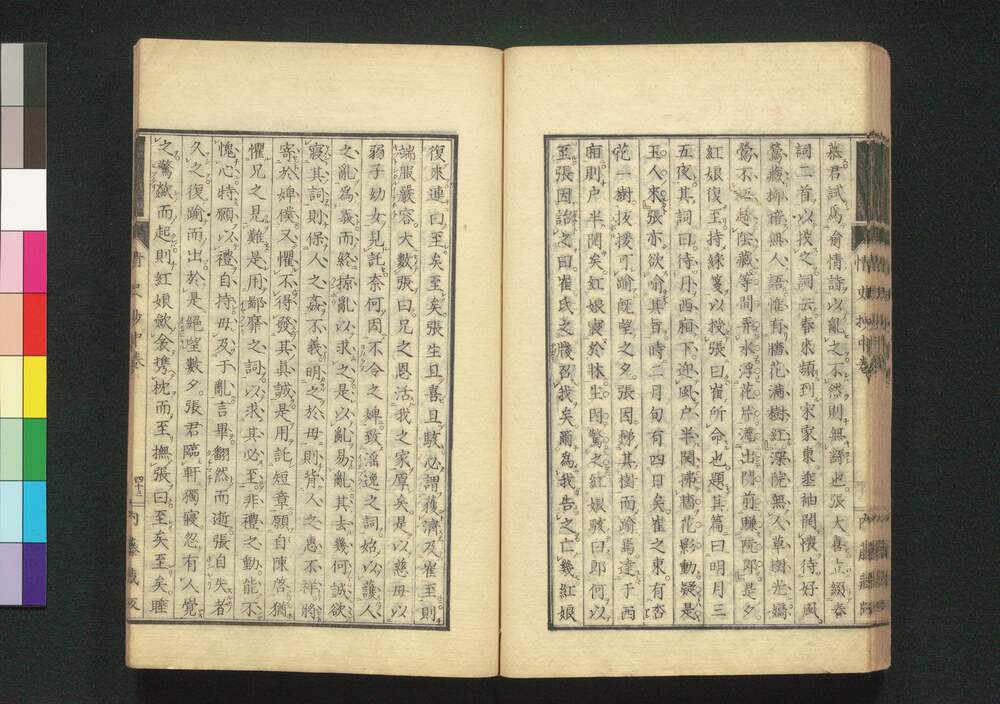 慕君試爲喩情詩以亂之不然則無繇也張大喜立綴春
詞二首以授之詞云春來頻到宋家東垂袖開懷待好風
鶯藏柳暗無人語惟有牆花滿樹紅深院無人草樹光嬌
鶯不語趁陰藏等閒弄水浮花片流出門前賺阮郎是夕
紅娘復至持綵箋以授張曰崔所命也題其篇曰明月三
五夜其詞曰待月西廂下迎風戶半開拂牆花影動疑是
玉人來張亦欲喩其旨時二月旬有四日矣崔之東有杏
花一樹扳援可踰旣望之夕張因梯其樹而踰焉達于西
廂則戶半開矣紅娘寢於牀生因驚之紅娘駭曰郎何以
至張因紿之曰崔氏之牋召我矣爾爲我告之亡幾紅娘
情史抄中卷
復來連曰至矣至矣張生且喜且駭必謂獲濟及崔至則
端服嚴容大數張曰兄之恩活我之家厚矣是以慈母以
弱子幼女見託奈何因不令之婢致淫逸之詞始以護人
之亂爲義而終掠亂以求之是以亂易亂其去幾何誠欲
寢其詞則保人之姦不義明之於母則背人之惠不祥將
寄於婢僕又懼不得發其眞誠是用託短章願自陳啓猶
懼兄之見難是用鄙靡之詞以求其必至非禮之動能不
愧心特願以禮自持毋及于亂言畢翻然而逝張自失者
久之復踰而出於是絕望數夕張君臨軒獨寢忽有人覺
之驚歘而起則紅娘歛衾擕枕而至撫張曰至矣至矣睡
情史抄中卷
四十三